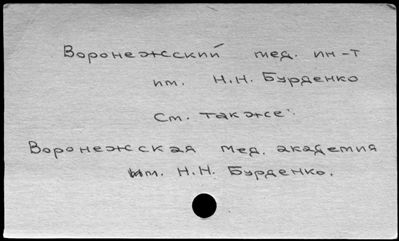 Воронежский мед. ин-т
им. Н.Н. Бурденко
См. также:
Воронежская мед. академия
им. Н.Н. Бурденко.